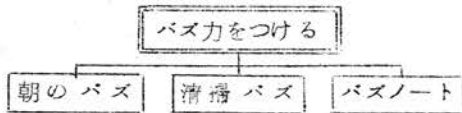 バズ力をつける
朝のバズ
清掃バズ
バズノート